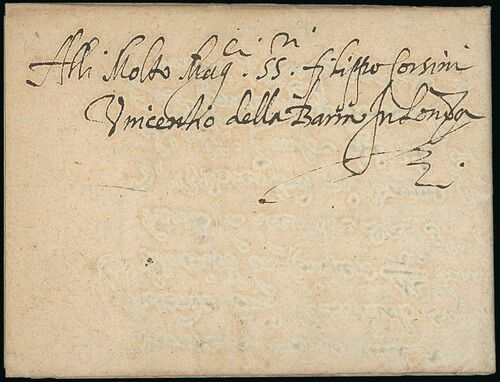 Alli Molto Mag.ci SS.ri filippo Corsini
Vnicentio della Barra In Londra